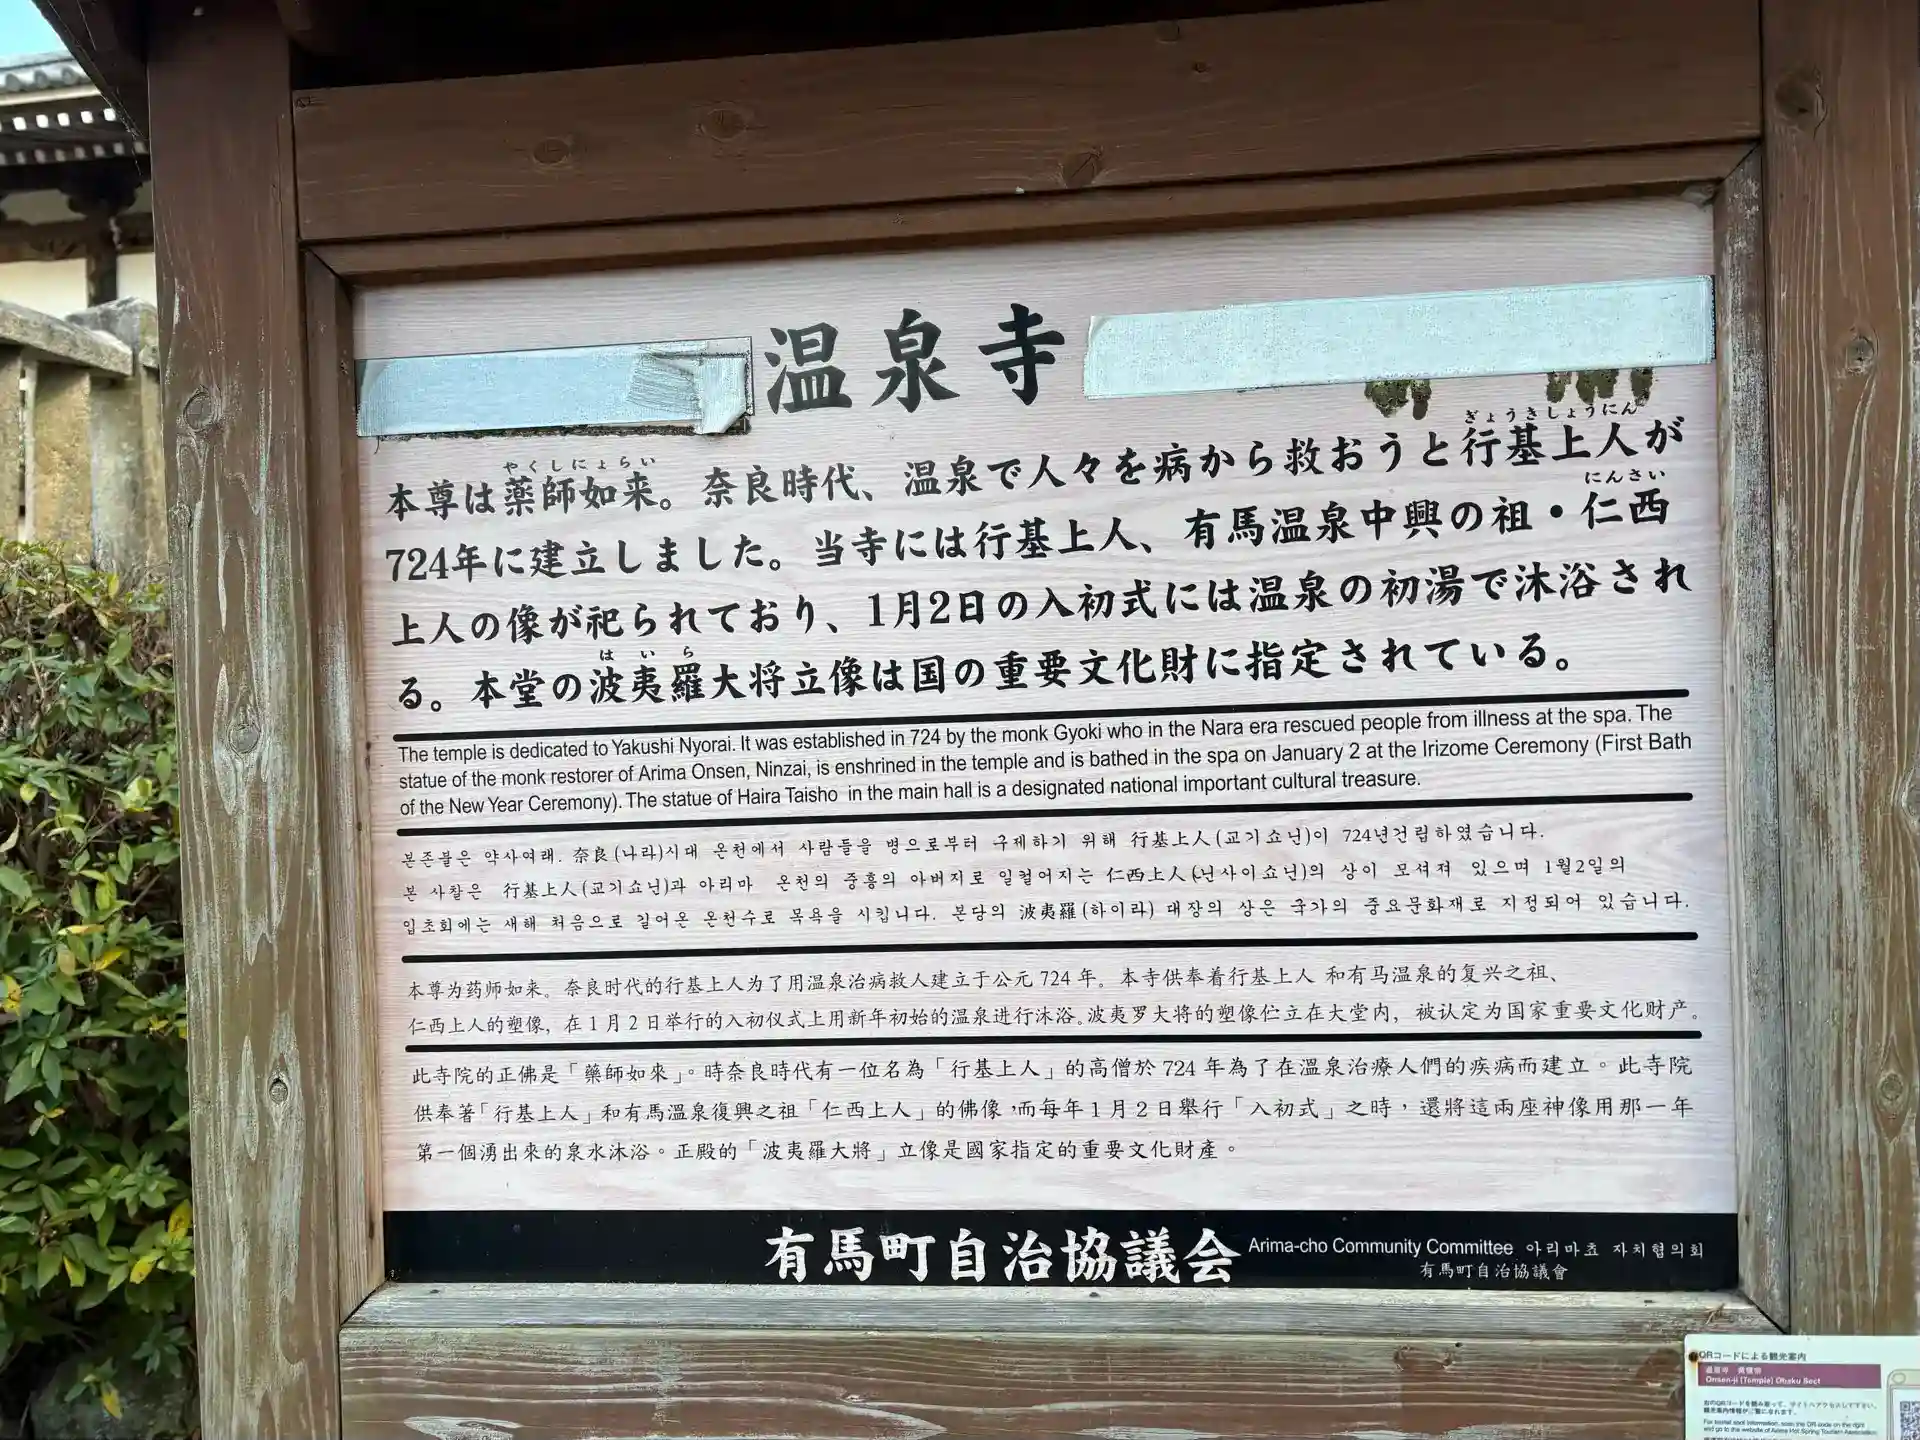 温泉寺
やくしにょらい ぎょうきしょうにん
本尊は薬師如来。奈良時代、温泉で人々を病から救おうと行基上人が
にんさい
724年に建立しました。当寺には行基上人、有馬温泉中興の祖・仁西
上人の像が祀られており、1月2日の入初式には温泉の初湯で沐浴され
はいら
る。本堂の波夷羅大将立像は国の重要文化財に指定されている。
The temple is dedicated to Yakushi Nyorai. It was established in 724 by the monk Gyoki who in the Nara era rescued people from illness at the spa. The
statue of the monk restorer of Arima Onsen, Ninzai, is enshrined in the temple and is bathed in the spa on January 2 at the Irizome Ceremony (First Bath
of the New Year Ceremony). The statue of Haira Taisho in the main hall is a designated national important cultural treasure.
본존불은 약사여래. 奈良(나라)시대 온천에서 사람들을 병으로부터 구제하기 위해 行基上人(교기쇼닌)이 724년건립하였습니다.
본 사찰은 行基上人(교기쇼닌)과 아리마 온천의 중흥의 아버지로 일컬어지는 仁西上人(닌사이쇼닌)의 상이 모셔져 있으며 1월2일의
입초회에는 새해 처음으로 길어온 온천수로 목욕을 시킵니다. 본당의 波夷羅(하이라) 대장의 상은 국가의 중요문화재로 지정되어 있습니다.
本尊为药师如来。奈良时代的行基上人为了用温泉治病救人建立于公元 724 年。本寺供奉着行基上人 和有马温泉的复兴之祖、
仁西上人的塑像，在 1 月 2 日举行的入初仪式上用新年初始的温泉进行沐浴。波夷罗大将的塑像伫立在大堂内，被认定为国家重要文化财产。
此寺院的正佛是「藥師如來」。時奈良時代有一位名為「行基上人」的高僧於 724 年為了在溫泉治療人們的疾病而建立。此寺院
供奉著「行基上人」和有馬溫泉復興之祖「仁西上人」的佛像，而每年 1 月 2 日舉行「入初式」之時，還將這兩座神像用那一年
第一個湧出來的泉水沐浴。正殿的「波夷羅大將」立像是國家指定的重要文化財產。
有馬町自治協議会 Arima-cho Community Committee 아리마쵸 자치협의회
有馬町自治協議會
QRコードによる観光案内
温泉寺 黄檗宗
Onsen-ji (Temple) Obaku Sect
右のQRコードを読み取って、サイトへアクセスして下さい。
観光案内情報がご覧になれます。
For tourist spot information, scan the QR code on the right
and go to the website of Arima Hot Spring Tourism Association.